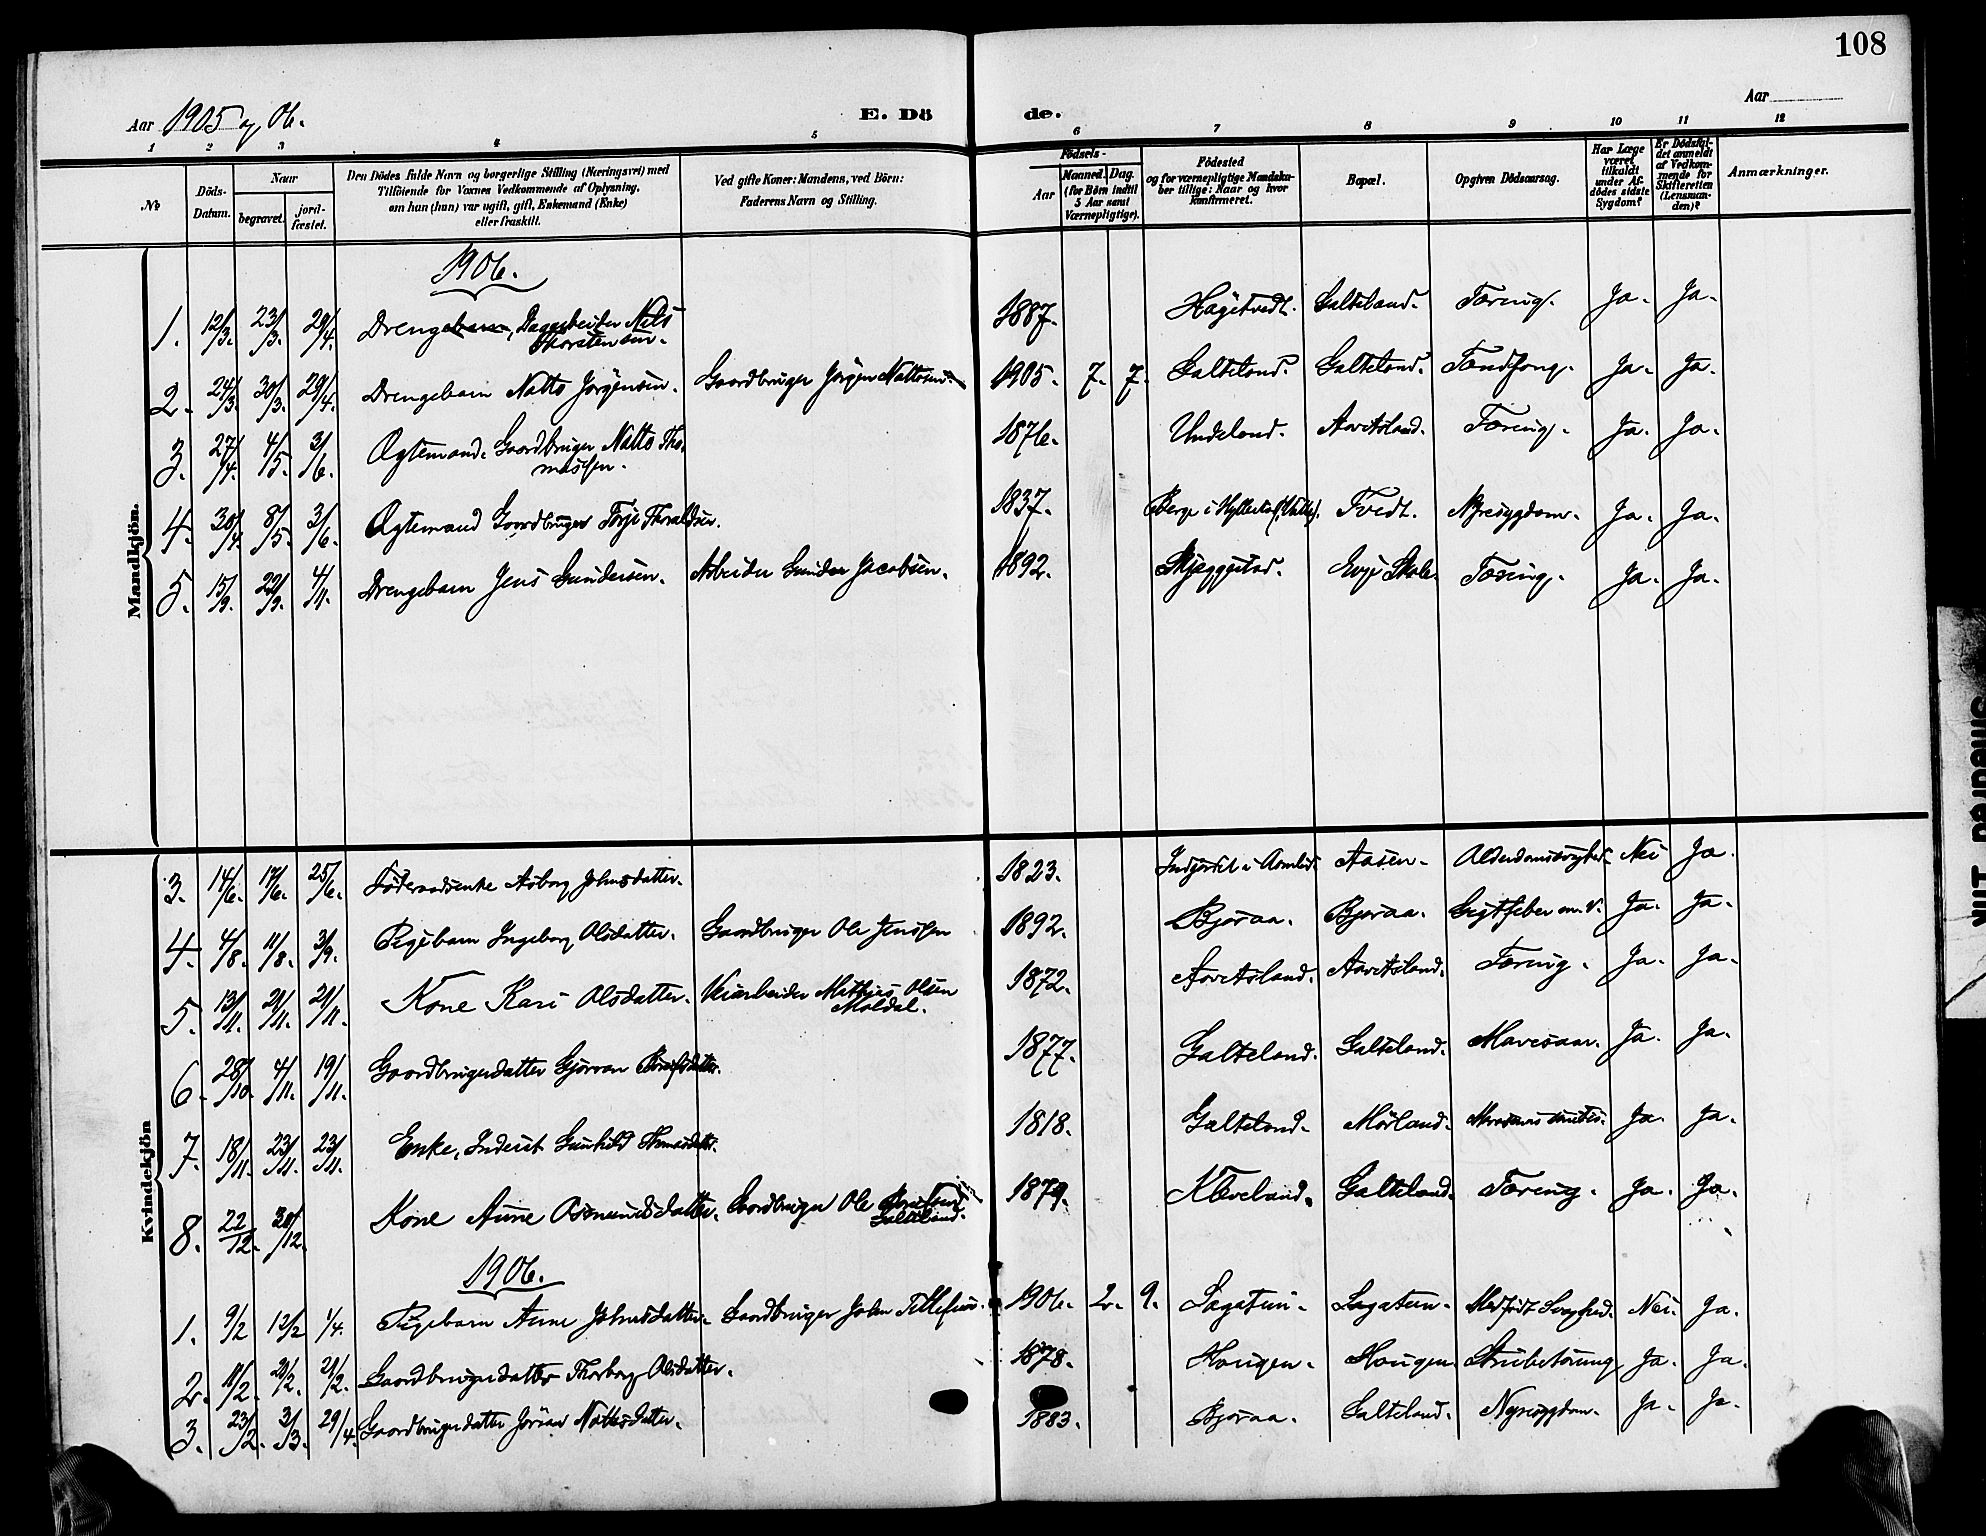 108
Aar 1905 og 06.
E. Dö
de.
Aar
1 2 3 4 5 6 7 8 9 10 11 12
№
Döds-Datum.
Naar
begravet.
jord-fæstet.
Den Dödes fulde Navn og borgerlige Stilling (Næringsvei) med
Tilföiende for Voxnes Vedkommende af Oplysning,
om han (hun) var ugift, gift, Enkemand (Enke)
eller fraskilt.
Ved gifte Koner: Mandens, ved Börn:
Faderens Navn og Stilling.
Födsels-
Aar
Maaned. Dag.
(for Börn indtil
5 Aar samt
Værnepligtige).
Födested
og for værnepligtige Mandska-
ber tillige: Naar og hvor
konfirmeret.
Bopæl.
Opgiven Dödsaarsag.
Har Læge
været
tilkaldt
under Af-
dödes sidste
Sygdom?
Er Dödsfal-
det anmeldt
af Vedkom-
mende for
Skifteretten
(Lensman-
den)?
Anmærkninger.
Mandkjön.
1906.
1. 12/3. 23/3. 29/4. Drengebarn, Dagarbeider Nils Thorstensen. 1887. Hagetvedt. Galteland. Tæring. Ja. Ja.
2. 24/3. 30/3. 29/4. Drengebarn Natto Jørgensen. Gaardbruger Jørgen Nattosen. 1905. 7. 7. Galteland. Galteland. Tandfong. Ja. Ja.
3. 27/4. 4/5. 3/6. Ægtemand. Gaardbruger Natto Thomassen. 1876. Undeland. Aavitsland. Tæring. Ja. Ja.
4. 30/4. 8/5. 3/6. Ægtemand Gaardbruger Torje Thoraldsen. 1837. Berge i Hyllestad (Valle). Tvedt. Nyresygdom. Ja. Ja.
5. 15/9. 22/9. 4/11. Drengebarn Jens Gundersen. Arbeider Gunder Jacobsen. 1892. Skjeggestad. Evje Skole. Tæring. Ja. Ja.
Kvindekjön
3. 14/6. 17/6. 25/6. Føderaadsenke Asborg Johnsdatter. 1823. Aasen. Alderdomssvaghed. Nei Ja.
4. 4/8. 11/8. 3/9. Pigebarn Ingeborg Olsdatter. Gaardbruger Ole Jenssen 1892. Bjoraa. Bjoraa. Gigtfeber m.V. Ja. Ja.
5. 13/11. 21/11. 21/11. Kone Kari Olsdatter. Veiarbeider Mathias Olsen Moldal. 1872. Aavitsland. Aavitsland. Tæring. Ja. Ja.
6. 28/10. 4/11. 19/11. Gaardbrugerdatter Gjøran 1877. Galteland. Galteland. Mavesaar. Ja. Ja.
7. 18/11. 23/11. 23/11. Enke, Inderst Gunhild 1818. Galteland. Mørland. Ja. Ja.
8. 22/12. 30/12. Kone Anne Osmundsdatter. Gaardbruger Ole Galteland. 1879. Kleveland. Galteland. Tæring. Ja. Ja.
1906.
1. 9/2 12/2 1/4. Pigebarn Anne Johnsdatter. Gaardbruger John Tellefsen. 1906. 2. 9. Lagatun. Lagatun. Medfødt Svaghed. Nei. Ja.
2. 11/2. 21/2. 21/2. Gaardbrugerdatter Thorborg Olsdatter. 1878. Hougen. Hougen Strubetæring Ja. Ja.
3. 23/2. 3/3. 29/4. Gaardbrugerdatter Jøran Nattosdatter. 1883. Bjoraa. Galteland. Nyresygdom. Ja. Ja.